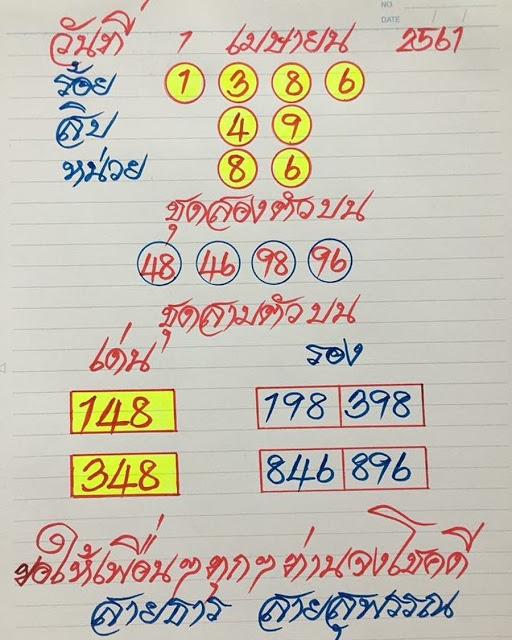 NO.
DATE / /
วันที่ 1 เมษายน 2561
ร้อย 1 3 8 6
สิบ 4 9
หน่วย 8 6
ชุดสองตัวบน
48 46 98 96
ชุดสามตัวบน
เด่น รอง
148 198 398
348 846 896
ขอให้เพื่อนๆทุกๆท่านจงโชคดี
สายธาร สายสุพรรณ